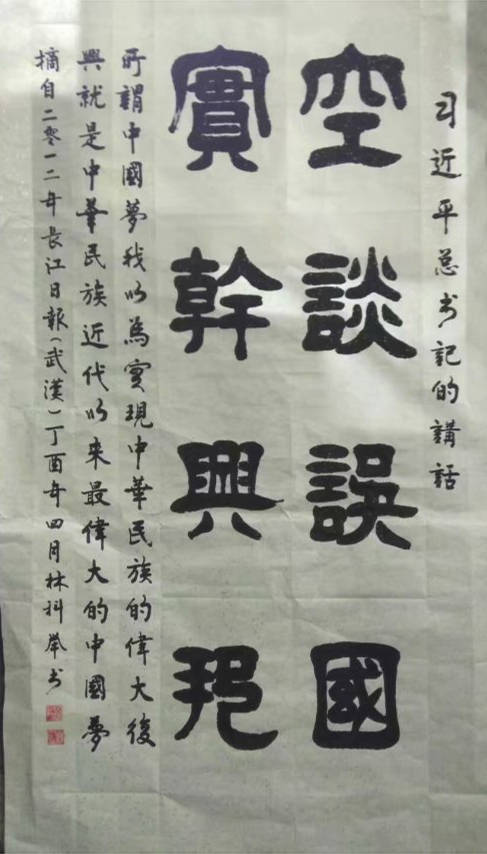 习近平总书记的講話
空談誤國
實幹興邦
所謂中國夢我以為实現中華民族的偉大復
興就是中華民族近代以来最偉大的中國夢
摘自二零一二年長江日報（武漢）丁酉年四月林科举书